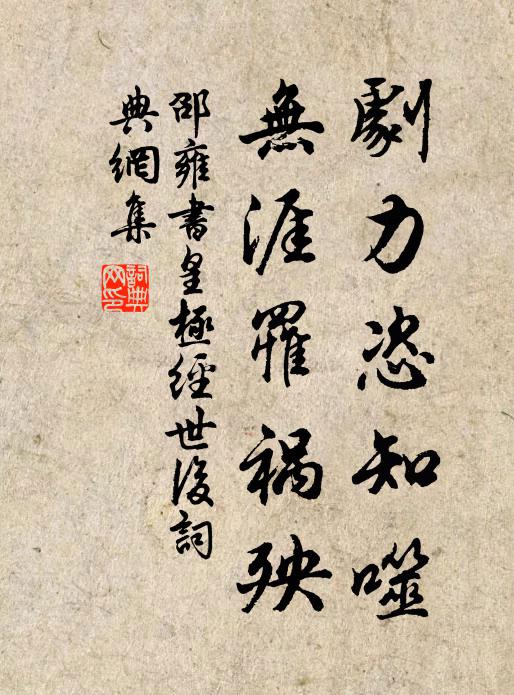 劇力恣知噬
無涯罹禍殃
邵雍書皇極經世後詞
典網集
詞典網印